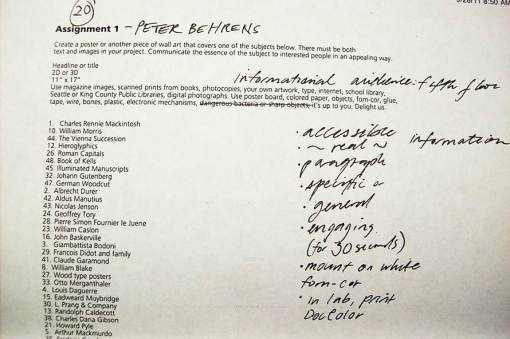 5/28/11 8:50 AM
20
Assignment 1 - PETER BEHRENS
Create a poster or another piece of wall art that covers one of the subjects below. There must be both
text and images in your project. Communicate the essence of the subject to interested people in an appealing way.
Headline or title
2D or 3D
11" x 17"
informational audience: fifth floor
Use magazine images, scanned prints from books, photocopies, your own artwork, type, internet, school library,
Seattle or King County Public Libraries, digital photographs. Use poster board, colored paper, objects, fom-cor, glue,
tape, wire, bones, plastic, electronic mechanisms, dangerous bacteria or sharp objects, it's up to you. Delight us.
1. Charles Rennie Mackintosh
10. William Morris
44. The Vienna Succession
12. Hieroglyphics
26. Roman Capitals
48. Book of Kells
45. Illuminated Manuscripts
32. Johann Gutenberg
47. German Woodcut
2. Albrecht Durer
42. Aldus Manutius
43. Nicolas Jenson
24. Geoffrey Tory
28. Pierre Simon Fournier le Juene
23. William Caslon
16. John Baskerville
3. Giambattista Bodoni
29. Francois Didot and family
41. Claude Garamond
8. William Blake
27. Wood type posters
33. Otto Merganthaler
4. Louis Daguerre
15. Eadweard Muybridge
30. L. Prang & Company
13. Randolph Caldecott
38. Charles Dana Gibson
21. Howard Pyle
5. Arthur Mackmurdo
• accessible
• ~ real ~ information
• paragraph
• specific or
• general
• engaging
(for 30 seconds)
• mount on white
fom-cor
• in lab, print
DocColor